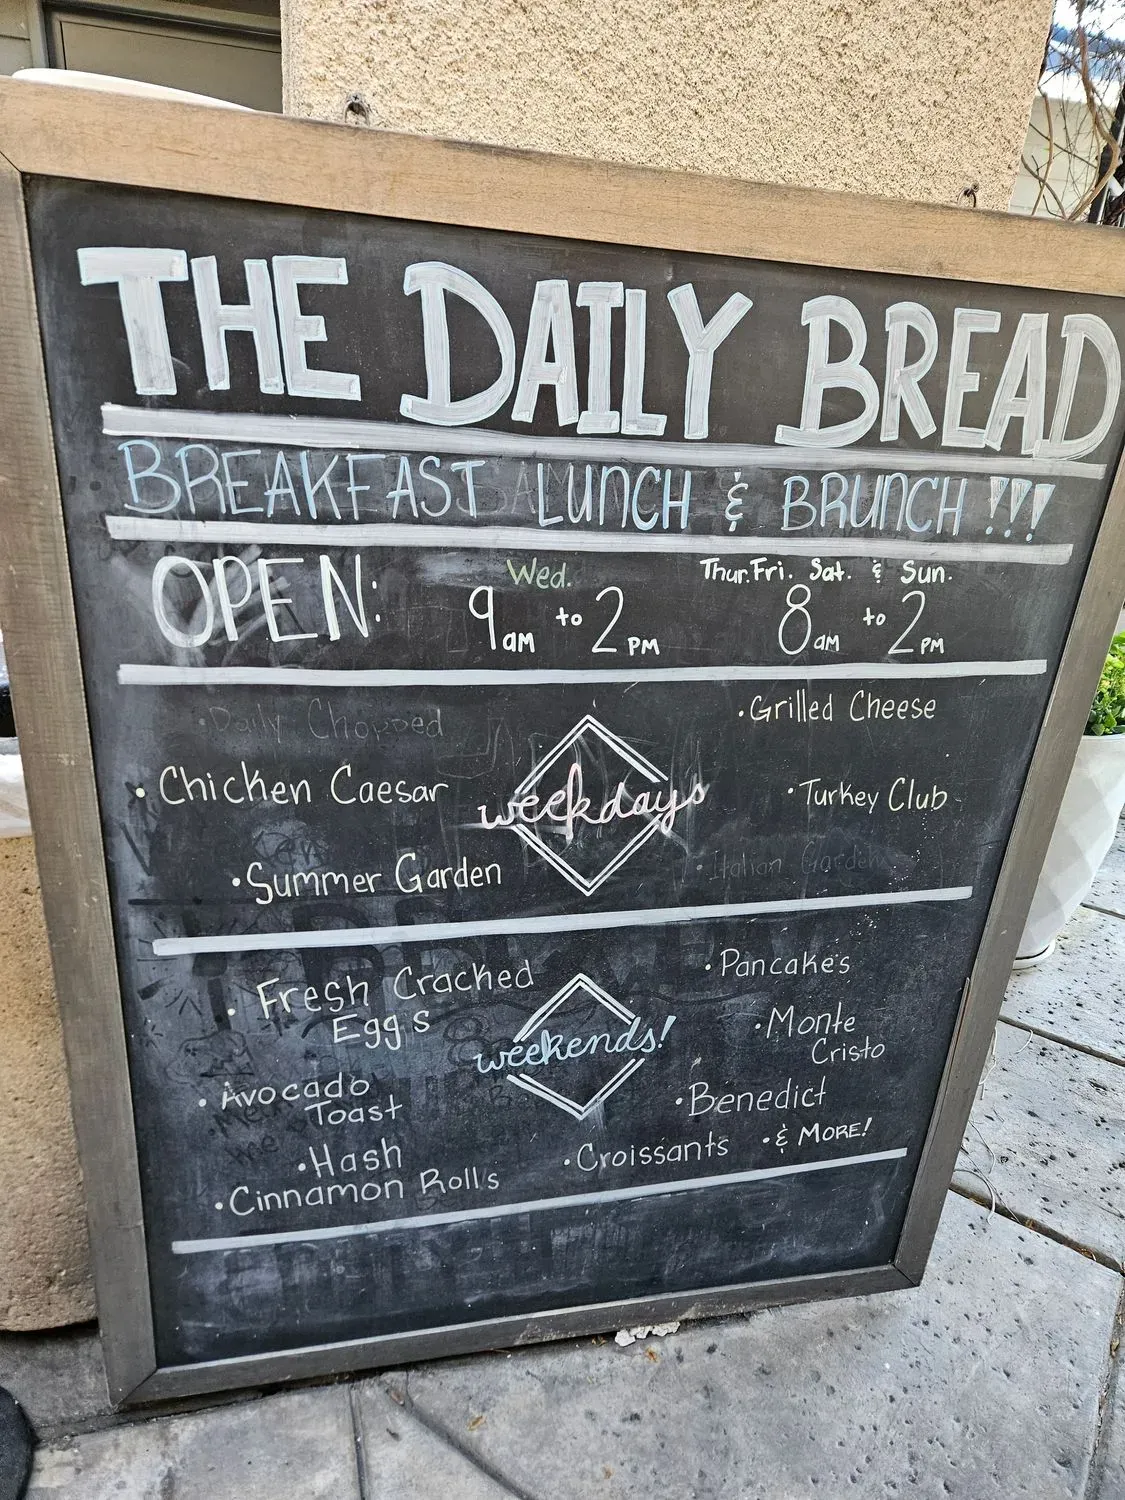 THE DAILY BREAD
BREAKFAST LUNCH & BRUNCH !!!
OPEN:
Wed.
9 am to 2 PM
Thur. Fri. Sat. & Sun.
8 am to 2 PM
weekdays
• Daily Chopped
• Chicken Caesar
• Summer Garden
• Grilled Cheese
• Turkey Club
• Italian Garden
weekends!
• Fresh Cracked
Eggs
• Avocado
Toast
• Hash
• Cinnamon Rolls
• Pancakes
• Monte
Cristo
• Benedict
• Croissants
• & MORE!